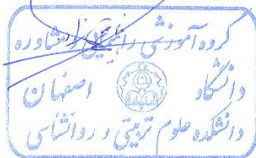 گروه آموزشی راهنمایی و مشاوره
دانشگاه اصفهان
دانشکده علوم تربیتی و روانشناسی